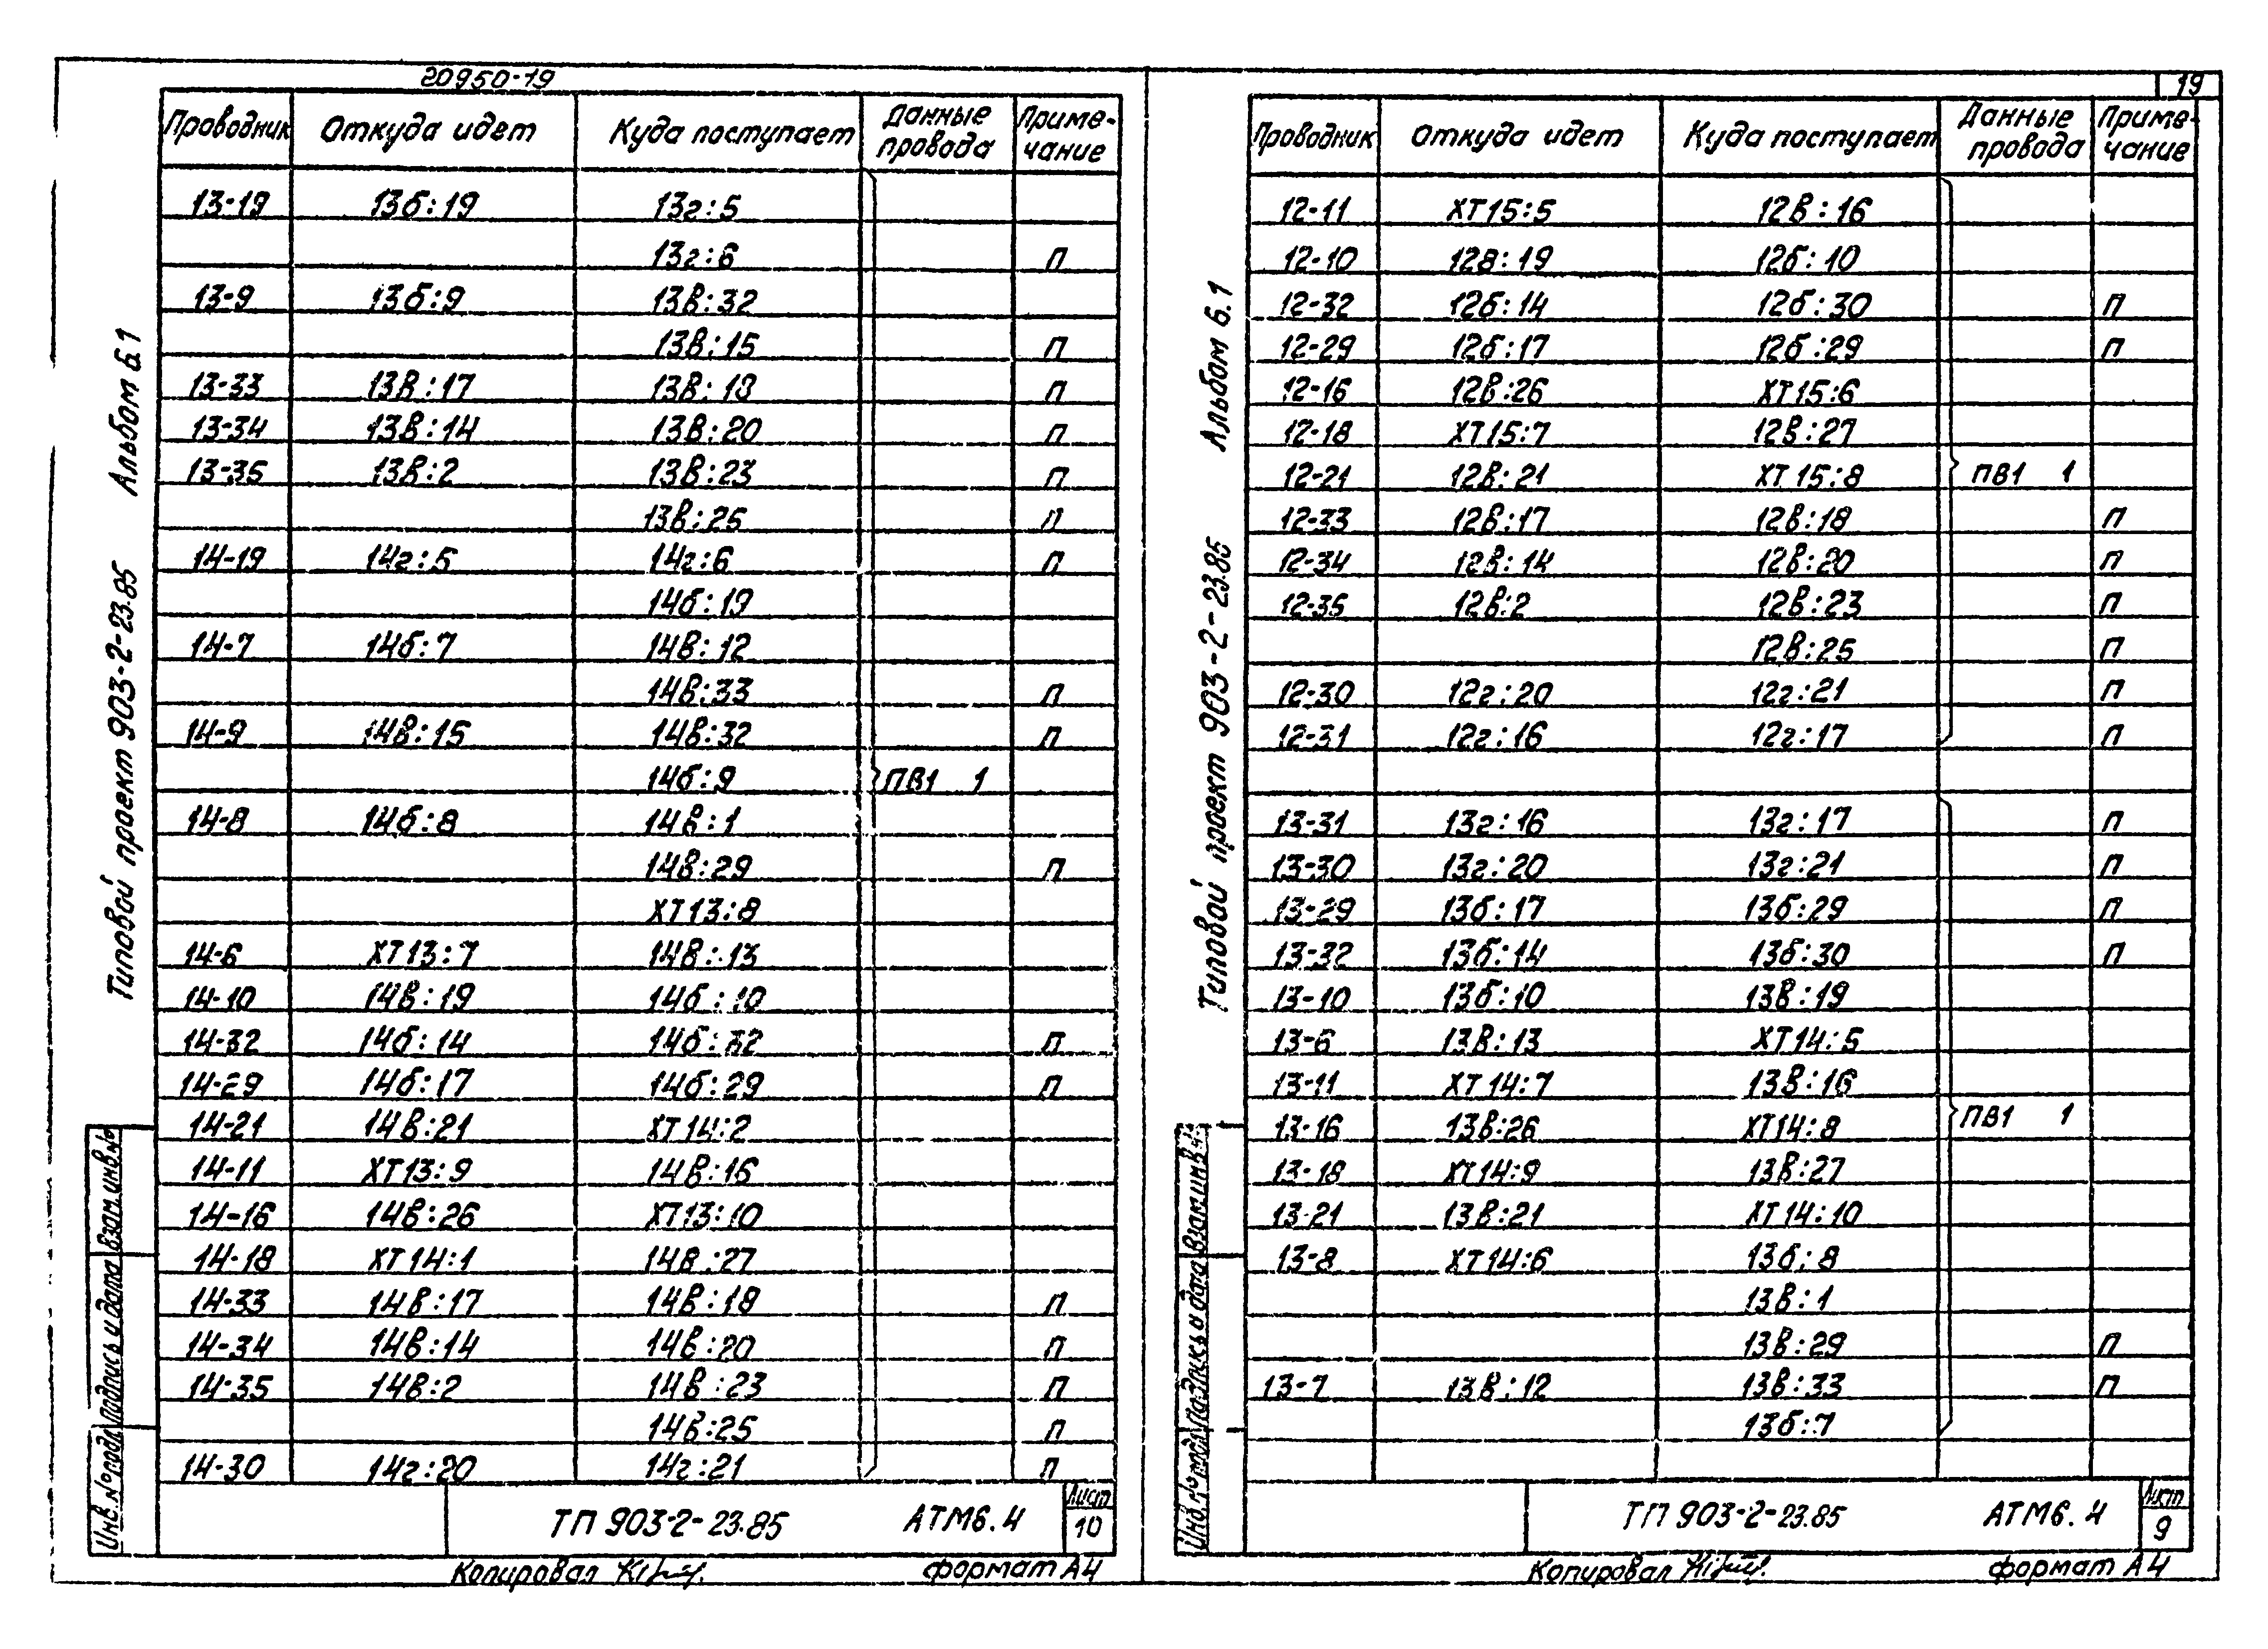 20950-19
Проводник Откуда идет Куда поступает Данные провода Приме-чание
13-19 13б:19 13г:5
13г:6 П
13-9 13б:9 13в:32
13в:15 П
13-33 13в:17 13в:18 П
13-34 13в:14 13в:20 П
13-35 13в:2 13в:23 П
13в:25 П
14-19 14г:5 14г:6 П
14б:19
14-7 14б:7 14в:12
14в:33 П
14-9 14в:15 14в:32 П
14б:9 ПВ1 1
14-8 14б:8 14в:1
14в:29 П
ХТ13:8
14-6 ХТ13:7 14в:13
14-10 14в:19 14б:10
14-32 14б:14 14б:32 П
14-29 14б:17 14б:29 П
14-21 14в:21 ХТ14:2
14-11 ХТ13:9 14в:16
14-16 14в:26 ХТ13:10
14-18 ХТ14:1 14в:27
14-33 14в:17 14в:18 П
14-34 14в:14 14в:20 П
14-35 14в:2 14в:23 П
14в:25 П
14-30 14г:20 14г:21 П
ТП 903-2-23.85 АТМ6.4 Лист 10
Копировал формат А4
Типовой проект 903-2-23.85 Альбом 6.1
Инв.№подл. Подпись и дата Взам.инв.№
19
Проводник Откуда идет Куда поступает Данные провода Приме-чание
12-11 ХТ15:5 12в:16
12-10 12в:19 12б:10
12-32 12б:14 12б:30 П
12-29 12б:17 12б:29 П
12-16 12в:26 ХТ15:6
12-18 ХТ15:7 12в:27
12-21 12в:21 ХТ15:8 ПВ1 1
12-33 12в:17 12в:18 П
12-34 12в:14 12в:20 П
12-35 12в:2 12в:23 П
12в:25 П
12-30 12г:20 12г:21 П
12-31 12г:16 12г:17 П
13-31 13г:16 13г:17 П
13-30 13г:20 13г:21 П
13-29 13б:17 13б:29 П
13-32 13б:14 13б:30 П
13-10 13б:10 13в:19
13-6 13в:13 ХТ14:5
13-11 ХТ14:7 13в:16
13-16 13в:26 ХТ14:8 ПВ1 1
13-18 ХТ14:9 13в:27
13-21 13в:21 ХТ14:10
13-8 ХТ14:6 13б:8
13в:1
13в:29 П
13-7 13в:12 13в:33 П
13б:7
ТП 903-2-23.85 АТМ6.4 Лист 9
Копировал формат А4
Типовой проект 903-2-23.85 Альбом 6.1
Инв.№подл. Подпись и дата Взам.инв.№